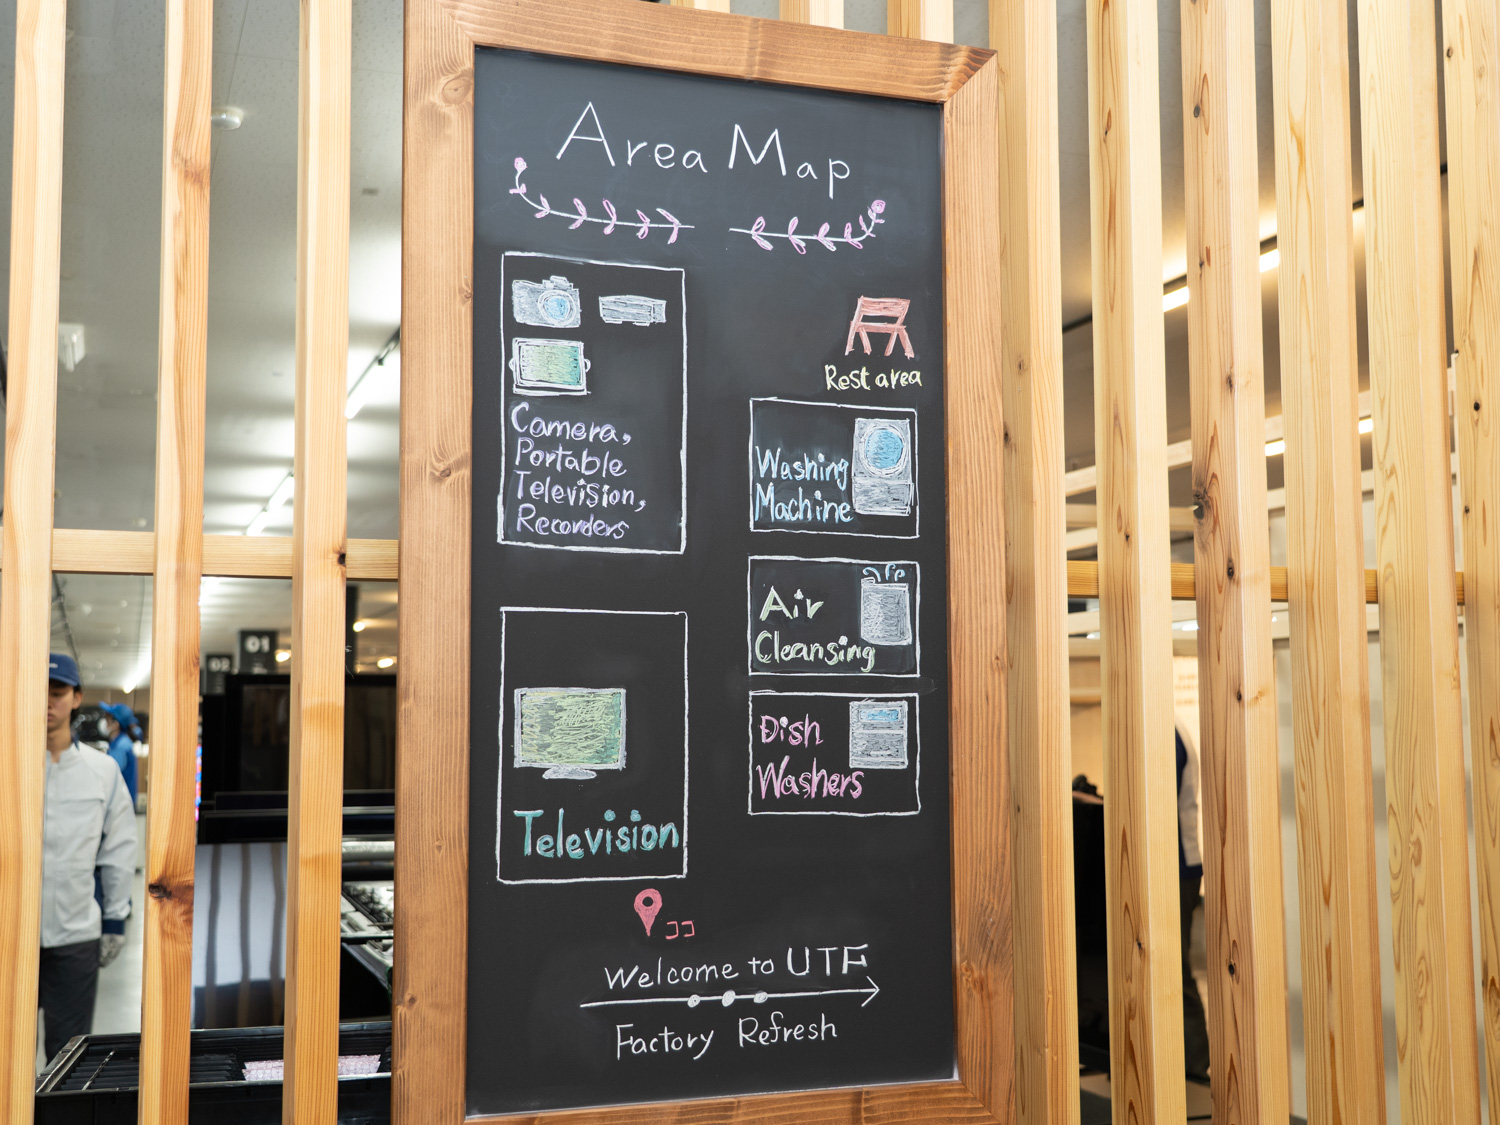 Area Map
Camera,
Portable
Television,
Recorders
Rest area
Washing
Machine
Air
Cleansing
Dish
Washers
Television
ココ
Welcome to UTF
Factory Refresh
02
01